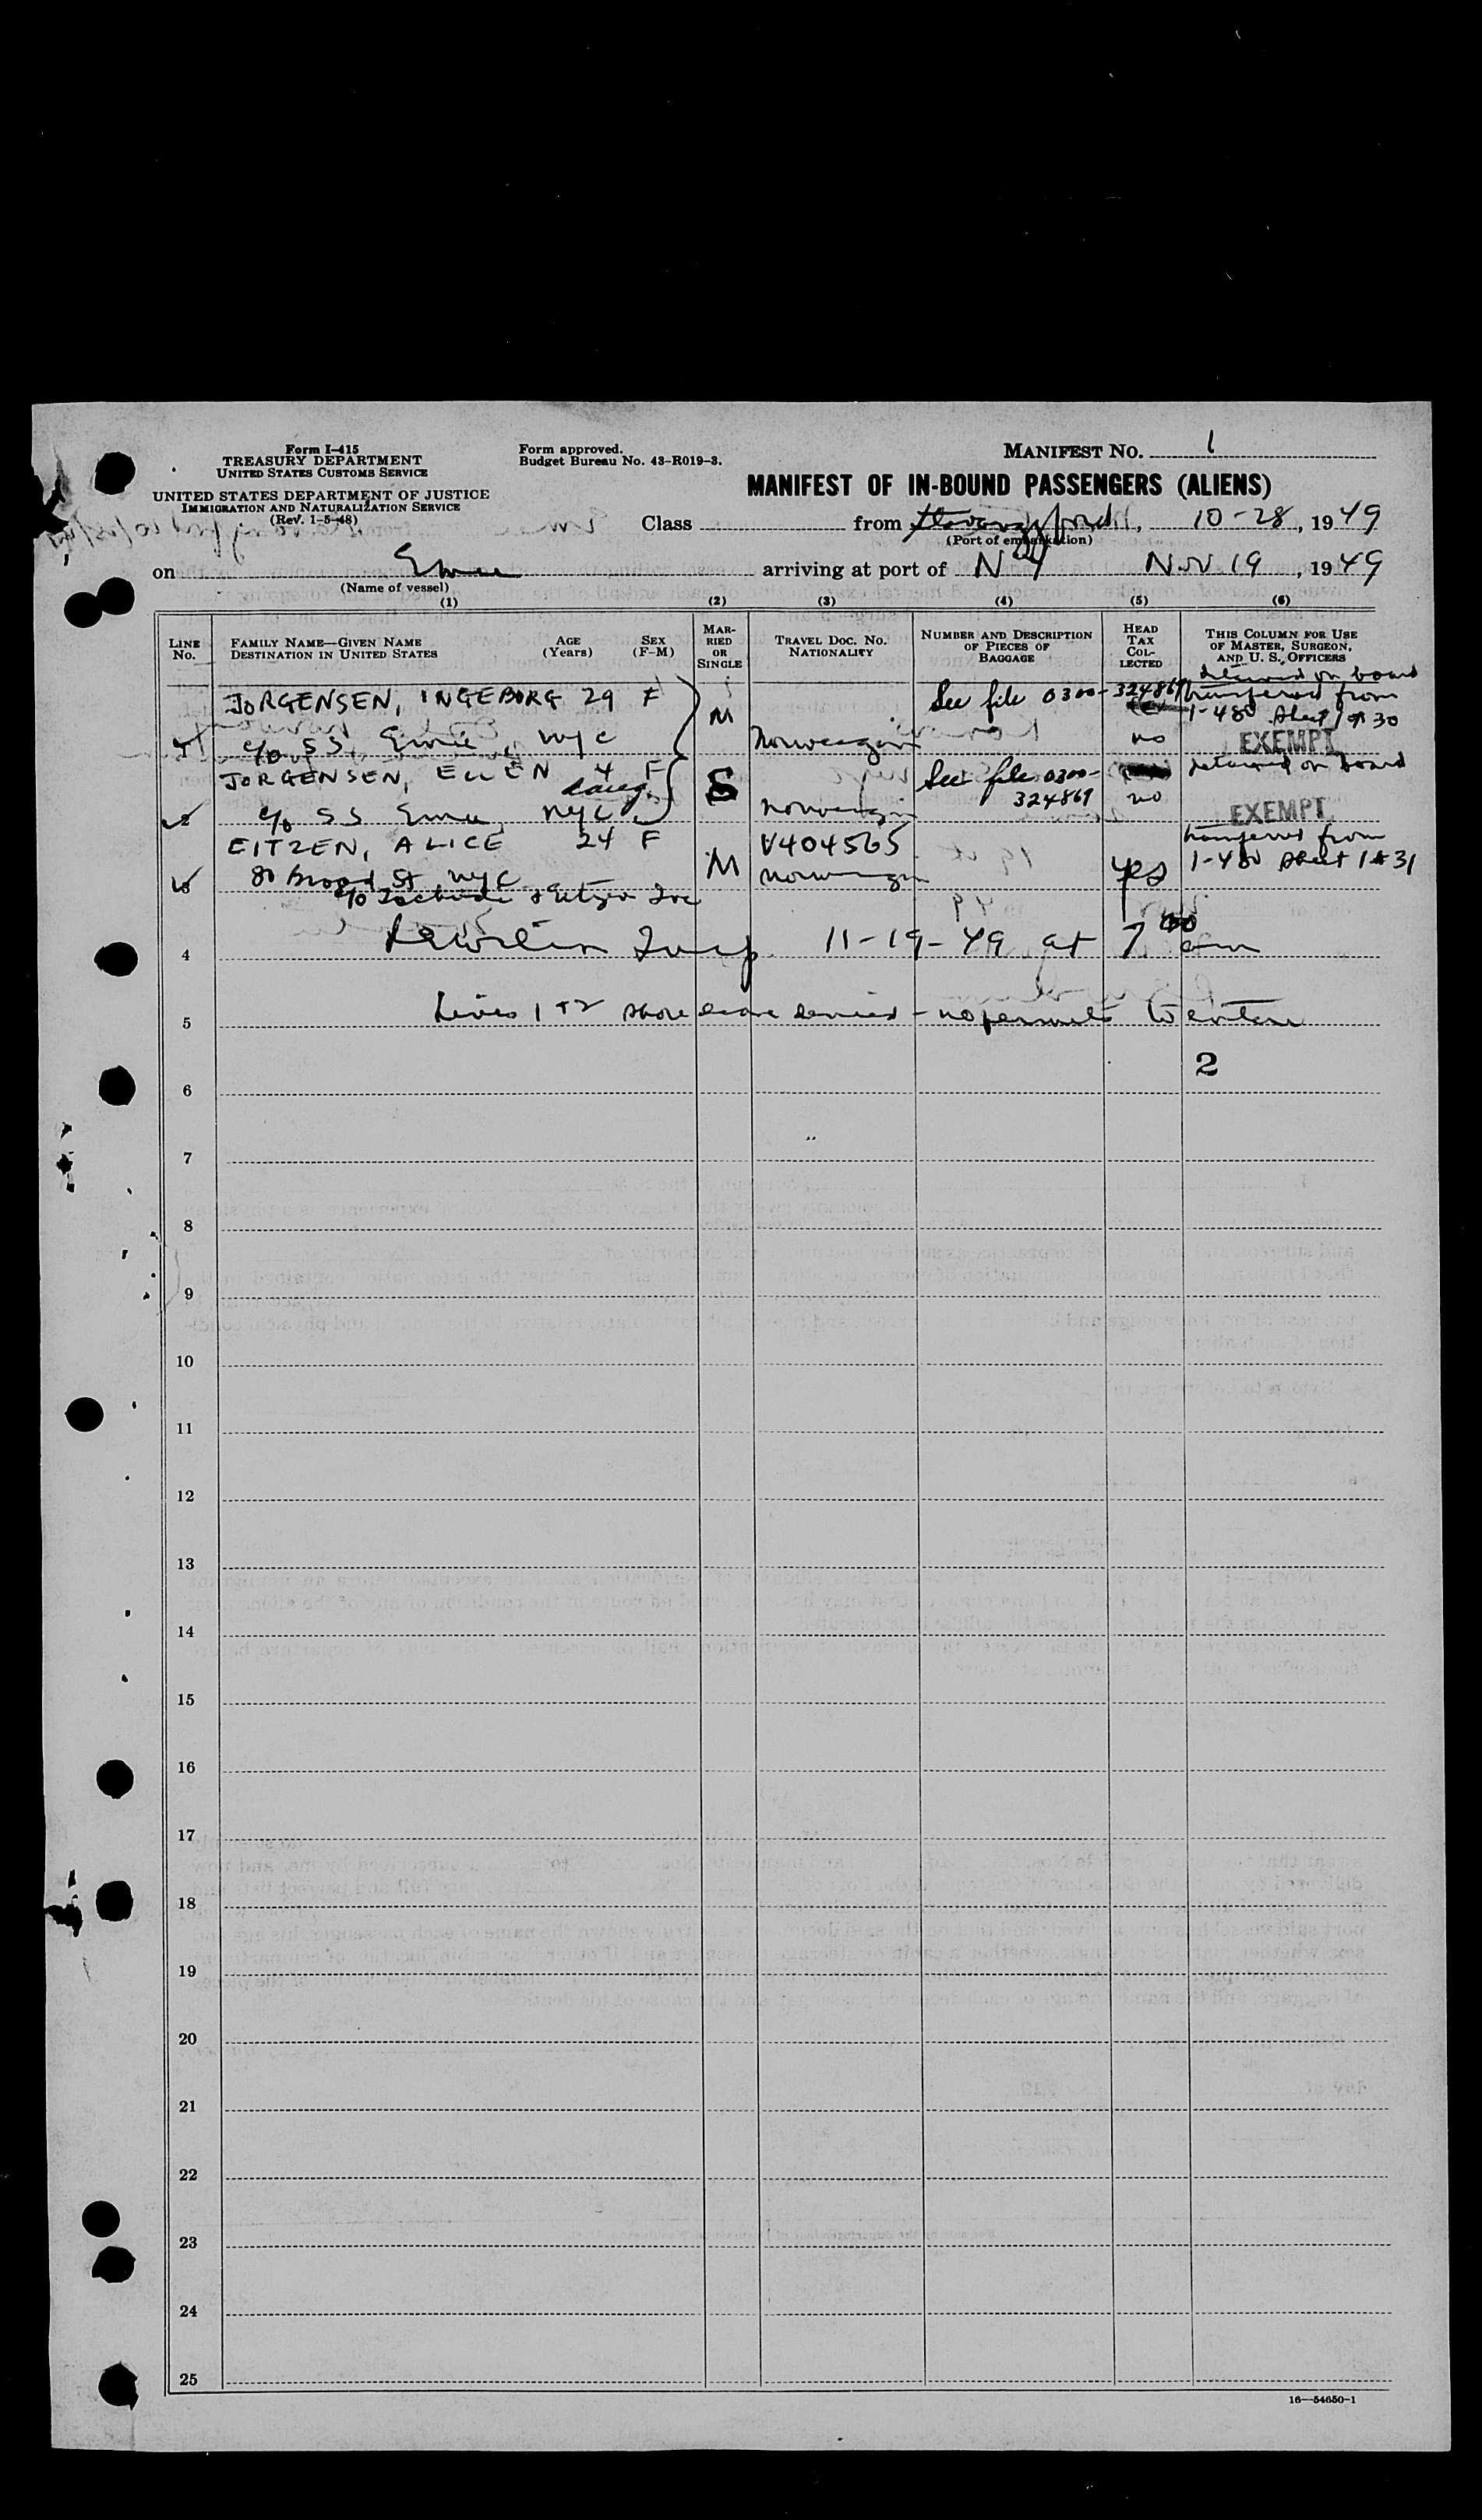 Form I-415
TREASURY DEPARTMENT
UNITED STATES CUSTOMS SERVICE
UNITED STATES DEPARTMENT OF JUSTICE
IMMIGRATION AND NATURALIZATION SERVICE
(Rev. 1-5-48)
Form approved.
Budget Bureau No. 43-R019-3.
MANIFEST No. 1
MANIFEST OF IN-BOUND PASSENGERS (ALIENS)
Class from , 10-28, 1949
(Port of embarkation)
on arriving at port of NY Nov 19, 1949
(Name of vessel)
(1) (2) (3) (4) (5) (6)
LINE No. FAMILY NAME—GIVEN NAME DESTINATION IN UNITED STATES AGE (Years) SEX (F-M) MARRIED OR SINGLE TRAVEL DOC. NO. NATIONALITY NUMBER AND DESCRIPTION OF PIECES OF BAGGAGE HEAD TAX COLLECTED THIS COLUMN FOR USE OF MASTER, SURGEON, AND U. S. OFFICERS
detained on board
JORGENSEN, INGEBORG 29 F M See file 0300-324869 transferred from
1-480 sheet 1 # 30
1 c/o SS , NYC Norwegian no EXEMPT
JORGENSEN, ELLEN 4 F S See file 0300- detained on board
daug. 324869 no
2 c/o SS NYC Norwegian EXEMPT
EITZEN, ALICE 24 F M V404565 transferred from
3 80 Broad St NYC Norwegian yes 1-480 sheet 1 # 31
c/o & Eitzen Inc
4 Insp. 11-19-49 at 7 00 am
5 Lines 1 + 2 shore leave denied - no permits to enter
2
6
7
8
9
10
11
12
13
14
15
16
17
18
19
20
21
22
23
24
25
16—54650-1